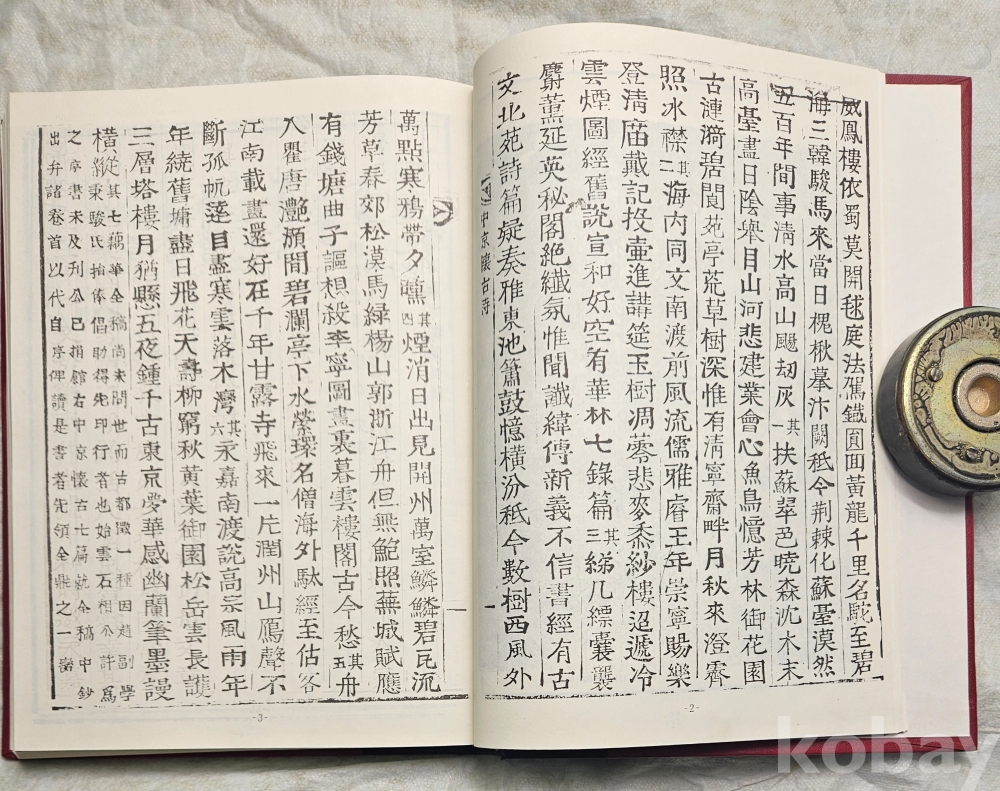 威鳳樓依蜀莫開毬庭法駕鐵圓回黃龍千里名駝至碧
海三韓駿馬來當日槐楸摹汴闕秪今荆棘化蘇臺漠然
五百年間事淸水高山颺刼灰其一扶蘇翠邑曉森沈木末
高臺盡日陰擧目山河悲建業會心魚鳥憶芳林御花園
古漣漪碧閬苑亭荒草樹深惟有淸寧齋畔月秋來澄霽
照水襟其二海內同文南渡前風流儒雅睿王年崇寧賜樂
登淸廟戴記投壷進講筵玉樹凋蕶悲麥黍紗樓迢遞冷
雲煙圖經舊說宣和好空有華林七錄篇其三綈几縹囊襲
麝薰延英秘閣絶纖氛惟聞讖緯傳新義不信書經有古
文北苑詩篇疑奏雅東池簫鼓憶橫汾秪今數樹西風外
中京懷古詩 一
-2-
萬點寒鴉帶夕曛其四煙消日出見開州萬室鱗鱗碧瓦流
芳草春郊松漠馬綠楊山郭浙江舟但無鮑照蕪城賦應
有錢塘曲子謳想殺李寧圖畫裏暮雲樓閣古今愁其五舟
人瞿唐灎澦間碧瀾亭下水縈環名僧海外馱經至估客
江南載畫還好在千年甘露寺飛來一片潤州山鴈聲不
斷孤帆遠目盡寒雲落木灣其六永嘉南渡說高宗風雨年
年統舊墉盡日飛花天壽柳窮秋黃葉御園松岳雲長護
三層塔樓月猶懸五夜鍾千古東京夢華感幽蘭筆墨謾
橫縱其七藕華全稿尚未問世而古都徵一種因趙副學
秉駿氏捐俸倡助得先印行者也始雲石相公許爲
之弁書未及刊公已捐館右中京懷古七篇就全稿中鈔
出弁諸卷首以代自序俾讀是書者先領全鼎之一臠
-3-
kobay